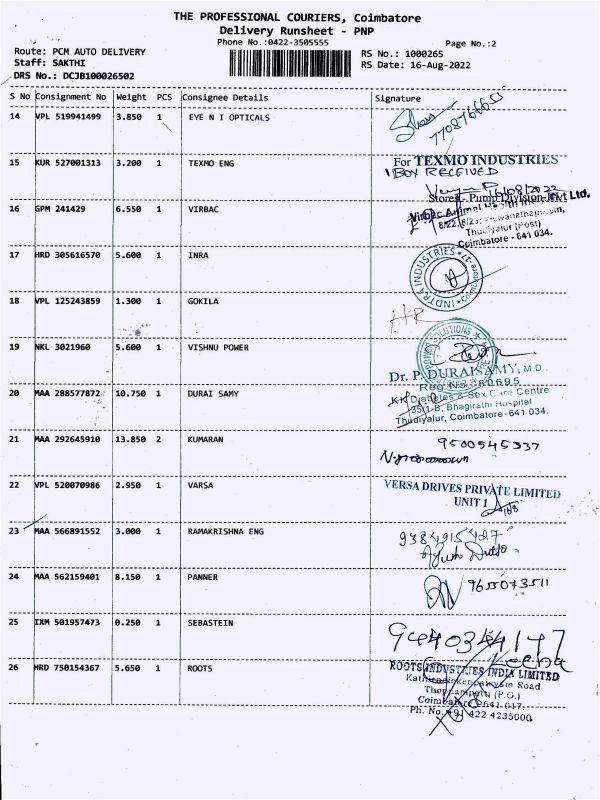 THE PROFESSIONAL COURIERS, Coimbatore
Delivery Runsheet - PNP
Phone No.:0422-3505555
Page No.:2
Route: PCM AUTO DELIVERY
Staff: SAKTHI
DRS No.: DCJB100026502
RS No.: 1000265
RS Date: 16-Aug-2022
S No Consignment No Weight PCS Consignee Details Signature
14 VPL 519941499 3.850 1 EYE N I OPTICALS
15 KUR 527001313 3.200 1 TEXMO ENG
For TEXMO INDUSTRIES
1 BOX RECEIVED
16/08/2022
Stores - Pump Division
16 GPM 241429 6.550 1 VIRBAC
Virbac Animal Health Pvt Ltd.
Thudiyalur (Post)
Coimbatore - 641 034.
17 HRD 305616570 5.600 1 INRA
INDTRA INDUSTRIES
18 VPL 125243859 1.300 1 GOKILA
19 NKL 3021960 5.600 1 VISHNU POWER
POWER SOLUTIONS
20 MAA 288577872 10.750 1 DURAI SAMY
Dr. P. DURAISAMY, M.D.,
Reg No. 50695
KK Diabetes & Sex Care Centre
35/1-B, Bhagirathi Hospital
Thudiyalur, Coimbatore-641 034.
21 MAA 292645910 13.850 2 KUMARAN
9500545337
22 VPL 520070986 2.950 1 VARSA
VERSA DRIVES PRIVATE LIMITED
UNIT 1
23 MAA 566891552 3.000 1 RAMAKRISHNA ENG
9384915427
24 MAA 562159401 8.150 1 PANNER
9655073511
25 IXM 501957473 0.250 1 SEBASTEIN
Leena
26 HRD 750154367 5.650 1 ROOTS
ROOTS INDUSTRIES INDIA LIMITED
Road
(P.O.)
Coimbatore-641 017.
Ph. No. +91 422 4235000